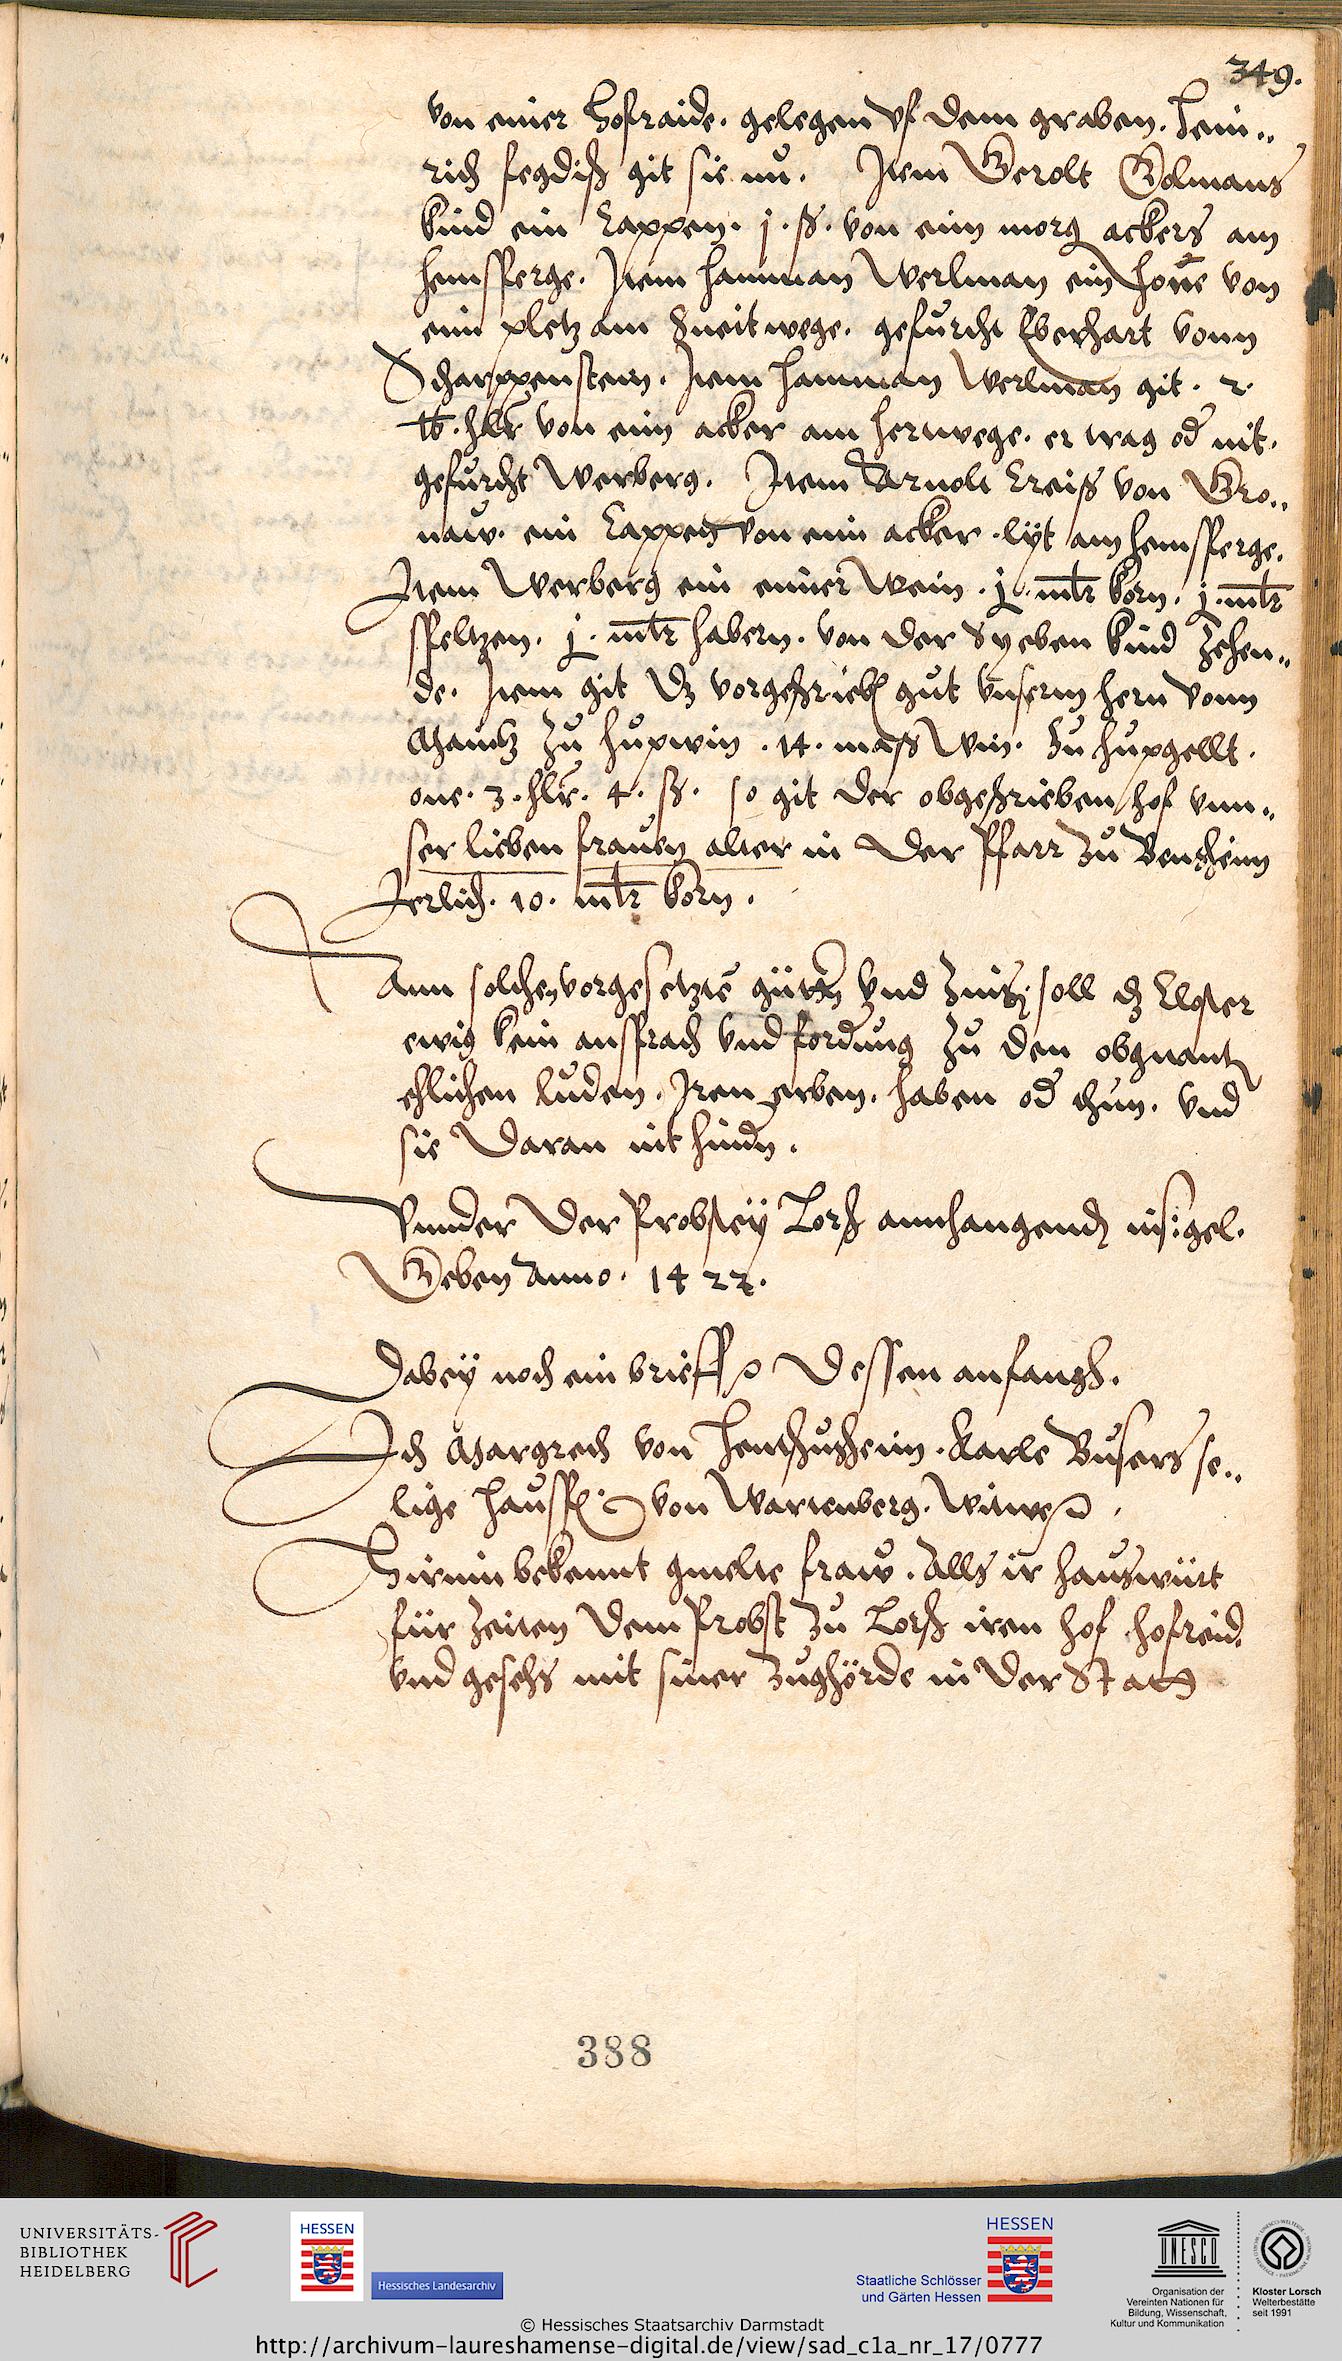 349.
von einer Hofraide. gelegen vf dem graben. Hein„
rich fegdiß git sie nů. Item Gerolt Volmans
kind ein Cappen. j. ß. von eim morg ackers am
hemssperge. Item Hamman Werlman ein hone von
eim pletz am Zweitwege. gefurcht Eberhart vonn
Scharppenstein. Item Hamman Werlman git. 2.
lb. hlr von eim acker am hertwege. er trag od nit.
gefurcht Werberg. Item Arnolt Creiß von Gro„
naw. ein Cappen von eim acker. lyt am hemssperge.
Item Werberg ein eimer Wein. j. mltr korn. j. mltr
speltzen. j. mltr habern. von der Syeben kind zehen„
de. Item git dz vorgeschrieb gut vnserm hern vonn
Maintz zů hupwin. 14. mass Win. Zu hupgellt.
one. 3. hlr. 4. ß. so git der obgeschrieben hof vnn„
ser lieben frauen alter in der Pfarr zů Benßheim
Jerlich. 10. mltr korn.
Ann solchen vorgesetzte gütern vnd Zinß soll dz Closter
ewig kein ansprach vnd fordung zů den obgnant
ehlichen luden. Iren erben. haben od thun. vnd
sie daran nit hindn.
Vnnder der Probstey Lorß annhangend insigel.
Geben Anno. 1422.
Dabey noch ein brieff dessen anfangh.
Ich Margreth von Hentschußheim. Karle Busers se„
lige haussf. von Wartenberg. Witwe.
Hirinn bekennt gmelte fraw. Alls ir hauswürt
für Zeiten dem Probst zů Lorß iren hof hofreid.
vnd gesehs mit siner Zughörde in der Statt
388
UNIVERSITÄTS-
BIBLIOTHEK
HEIDELBERG
HESSEN
Hessisches Landesarchiv
HESSEN
Staatliche Schlösser
und Gärten Hessen
UNESCO
Organisation der
Vereinten Nationen für
Bildung, Wissenschaft,
Kultur und Kommunikation
Kloster Lorsch
Welterbestätte
seit 1991
© Hessisches Staatsarchiv Darmstadt
http://archivum-laureshamense-digital.de/view/sad_c1a_nr_17/0777